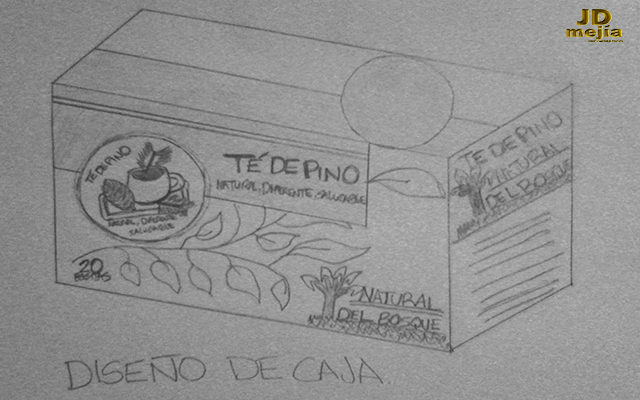 JD
mejía
TÉ DE PINO
NATURAL, DIFERENTE, SALUDABLE
TÉ DE PINO
NATURAL, DIFERENTE
SALUDABLE
20
NATURAL
DEL BOSQUE
TE DE PINO
NATURAL
DEL BOSQUE
DISEÑO DE CAJA.